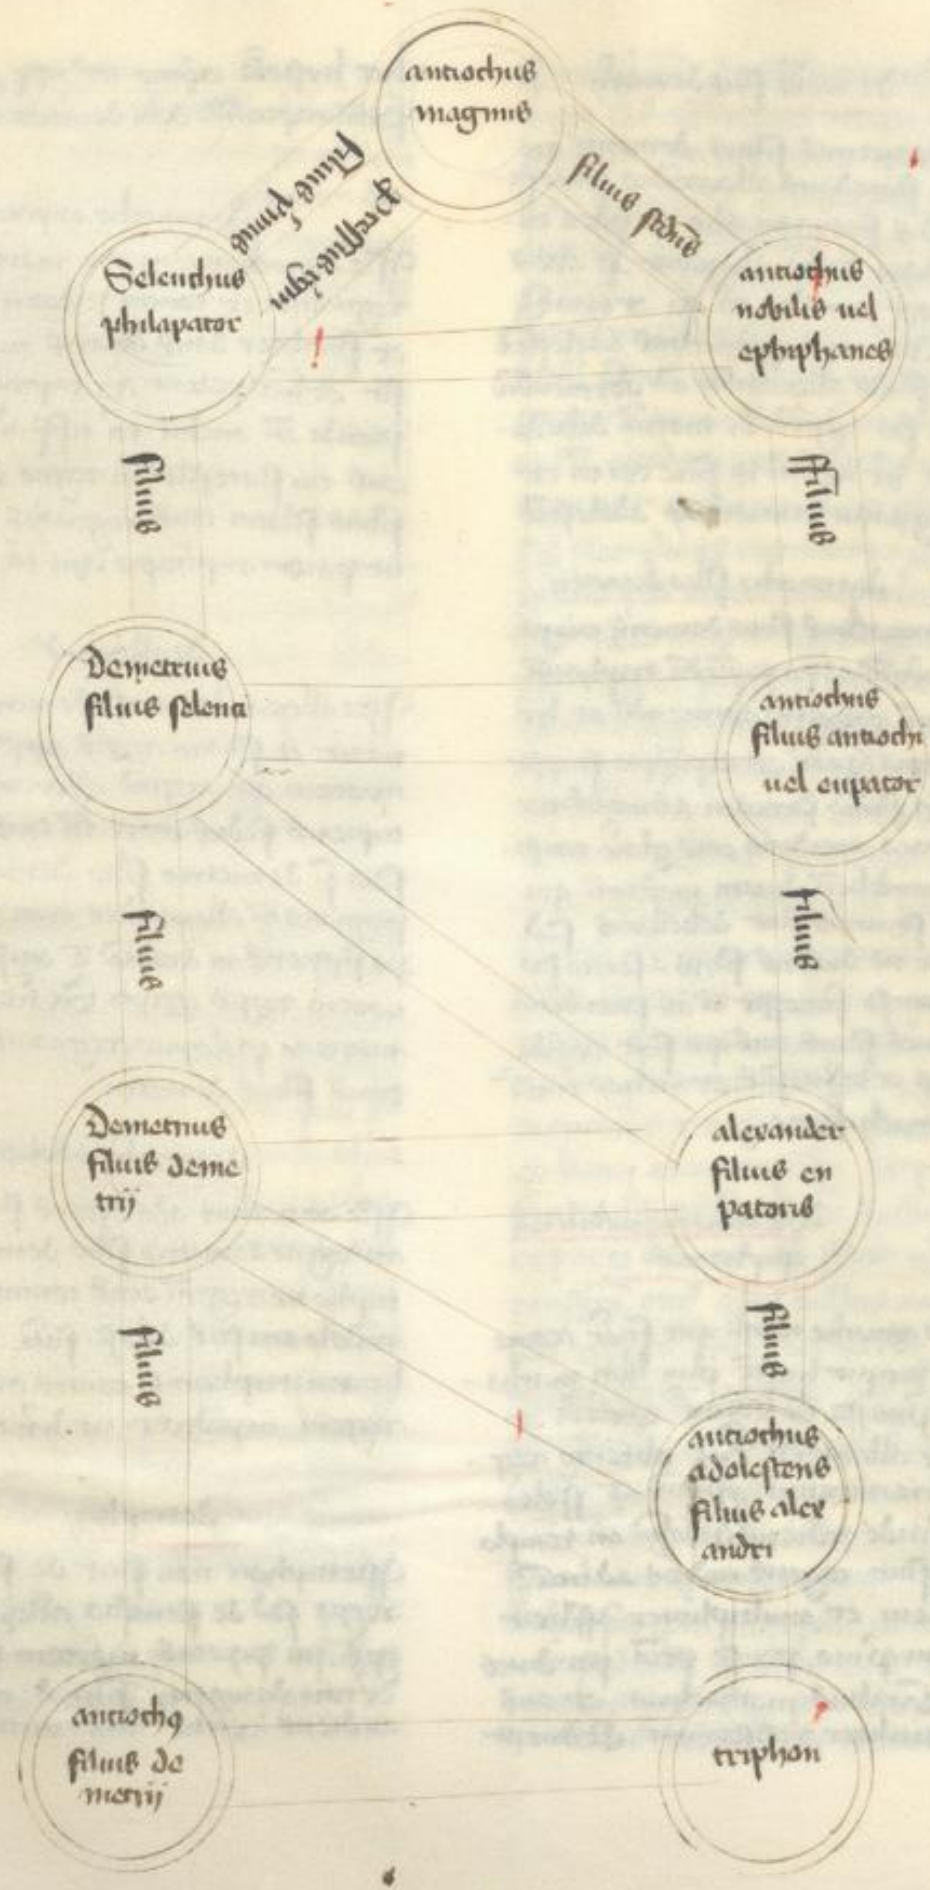 antiochus
magnus
filius primus
filius scdus
Seleuchus
philapator
antiochus
nobilis uel
ephiphanes
filius
filius
Demetrius
filius seleuci
antiochus
filius antiochi
uel eupator
filius
filius
Demetrius
filius deme
trij
alexander
filius eu
patoris
filius
filius
antiochus
adolescens
filius alex
andri
antiochꝯ
filius de
metrij
triphon